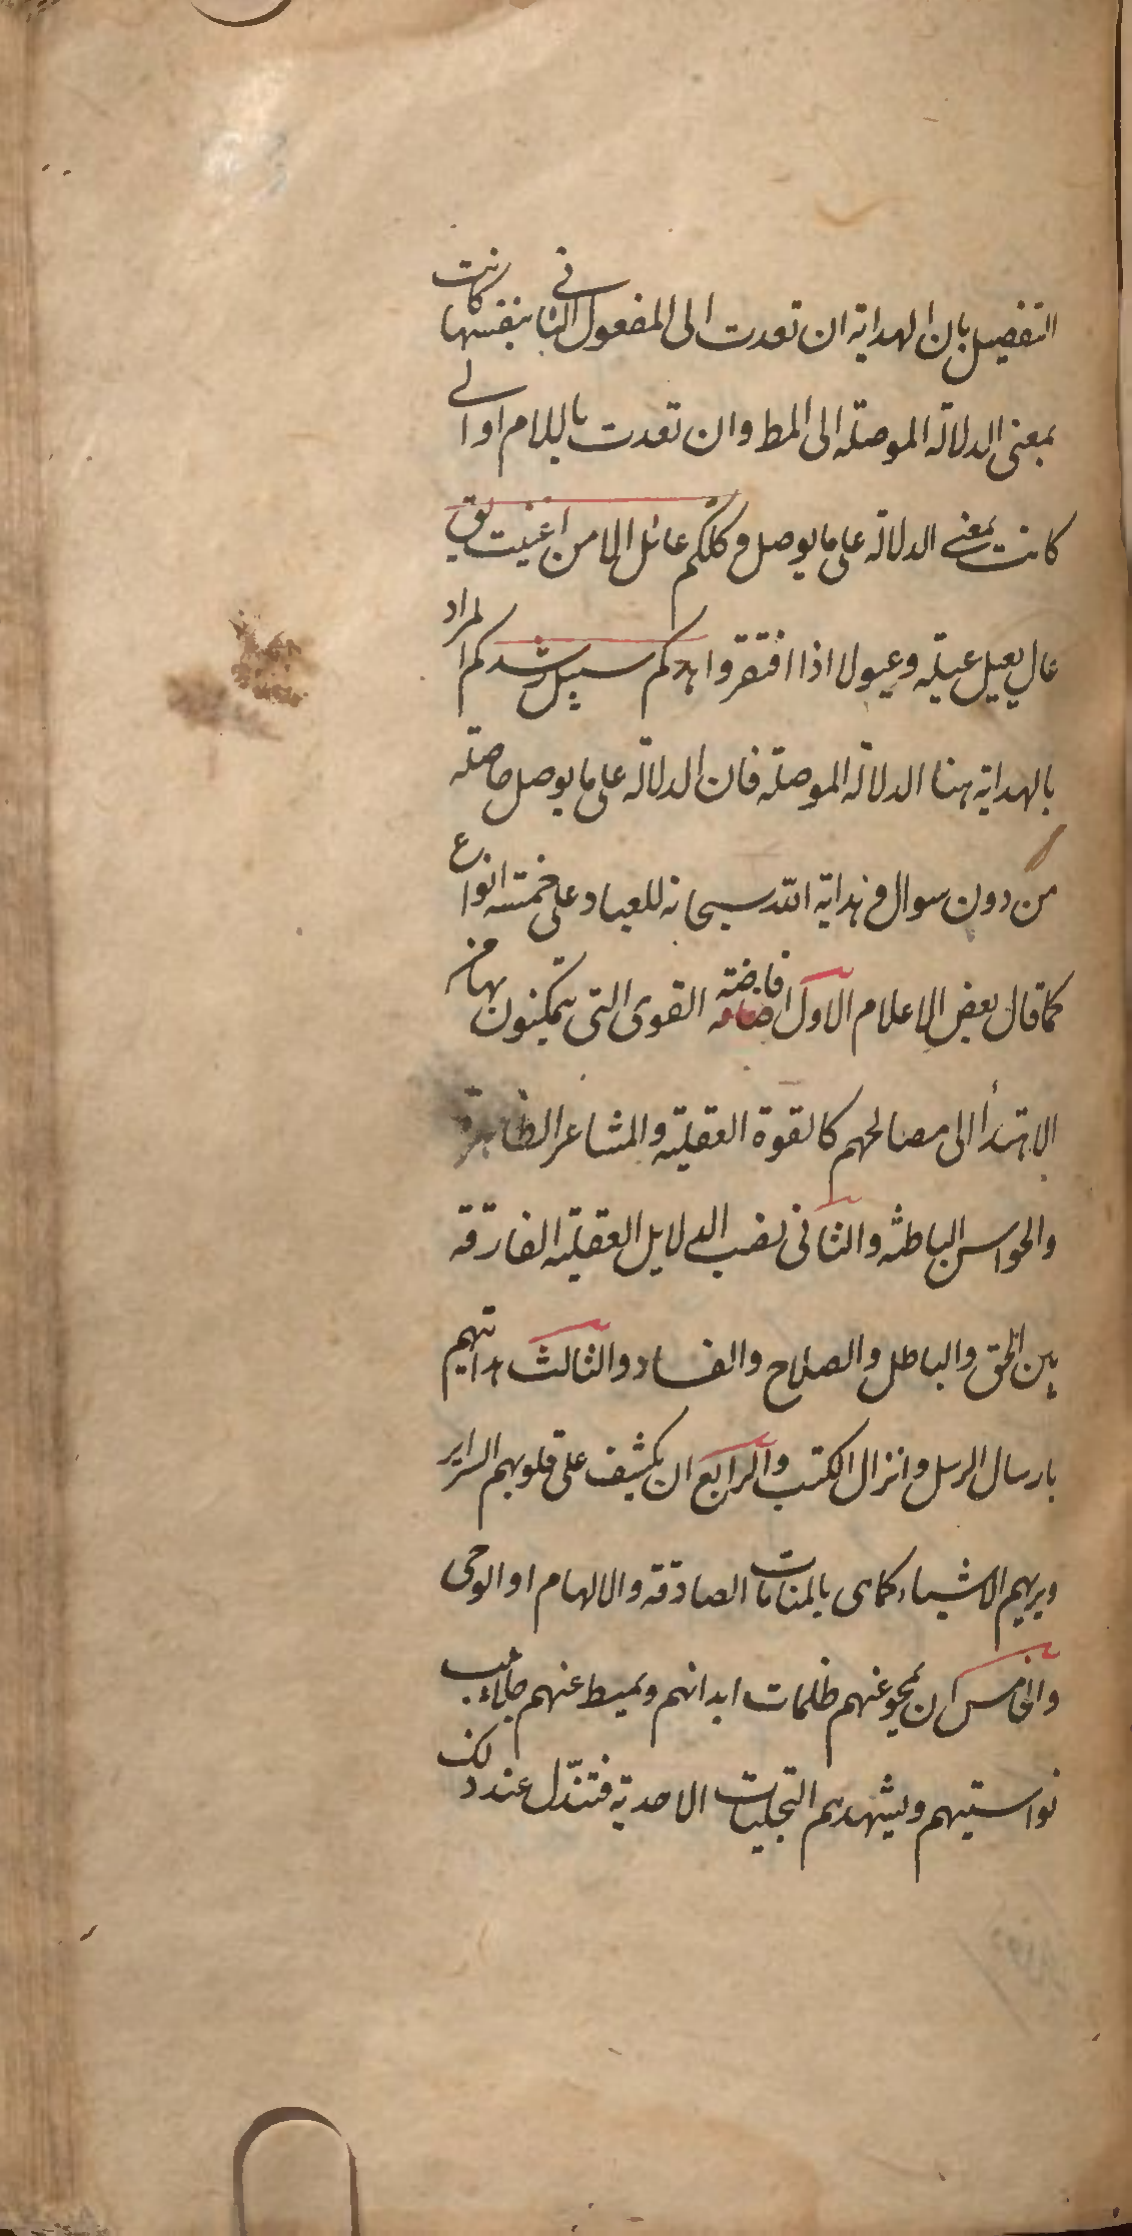 التفصيل بان الهداية ان تعدت الى المفعول الثانى بنفسها كانت
بمعنى الدلالة الموصلة الى المط وان تعدت باللام او الى
كانت بمعنى الدلالة على ما يوصل وكلكم عائل الا من اغنيت يق
عال يعيل عيلة وعيولا اذا افتقر واهدكم سبيل رشدكم المراد
بالهداية هنا الدلالة الموصلة فان الدلالة على ما يوصل حاصلة
من دون سوال وهداية الله سبحانه للعباد على خمسة انواع
كما قال بعض الاعلام الاول افاضة القوى التى يتمكنون بها من
الاهتدأ الى مصالحهم كالقوة العقلية والمشاعر الظاهرة
والحواس الباطنة والثانى نصب الدلايل العقلية الفارقة
بين الحق والباطل والصلاح والفساد والثالث هدايتهم
بارسال الرسل وانزال الكتب والرابع ان يكشف على قلوبهم السراير
ويريهم الاشياء كماهى بالمنامات الصادقة والالهام او الوحى
والخامس ان يمحو عنهم ظلمات ابدانهم ويميط عنهم جلابيب
نواسيتهم ويشهدهم التجليات الاحدية فتندّل عند ذلك